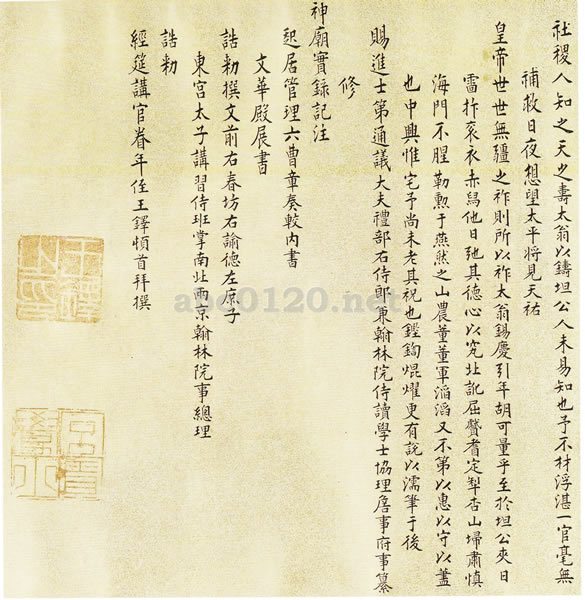 社稷人知之天之壽太翁以鑄坦公人未易知也予不材浮湛一官毫無
補救日夜想望太平將見天祐
皇帝世世無疆之祚則所以祚太翁錫慶引年胡可量乎至於坦公夾日
雷抃袞衣赤舄他日弛其德心以究北訛屈贅耆定犁杏山埽肅慎
海門不腥勒勲于燕然之山農董董軍滔滔又不第以惠以守以蓋
也中興惟宅予尚未老其祝也鏗鍧焜燿更有説以濡筆于後
賜進士第通議大夫禮部右侍郎兼翰林院侍讀學士協理詹事府事纂
修
神廟實錄記注
起居管理六曹章奏較内書
文華殿展書
誥勅撰文前右春坊右諭德左庶子
東宮太子講習侍班掌南北兩京翰林院事總理
誥勅
經筵講官眷年侄王鐸頓首拜撰
abc0120.net